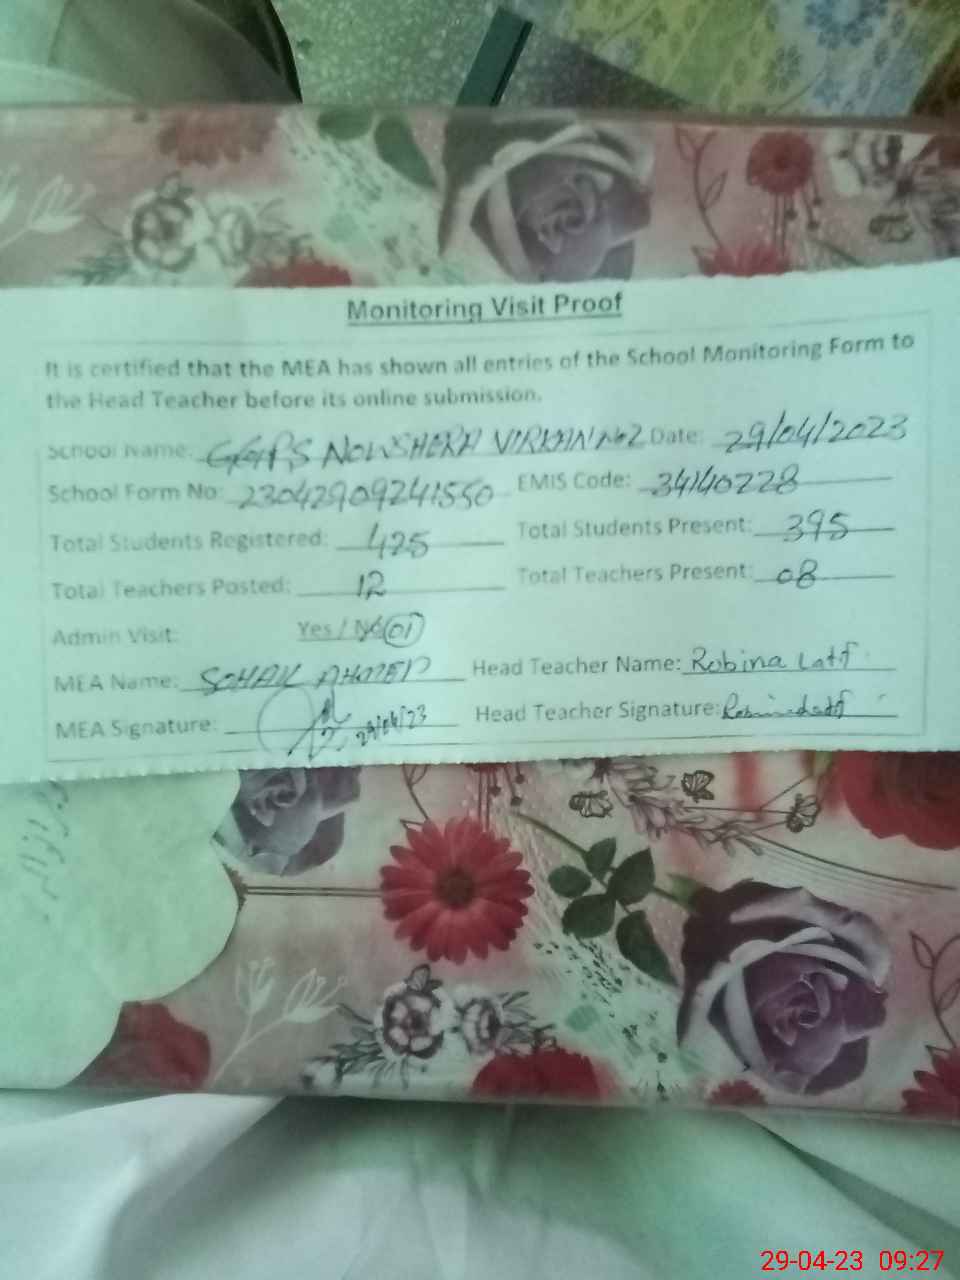 Monitoring Visit Proof
It is certified that the MEA has shown all entries of the School Monitoring Form to
the Head Teacher before its online submission.
School Name: GGPS NOWSHERA VIRKAN No2 Date: 29/04/2023
School Form No: 23042909241550 EMIS Code: 34140228
Total Students Registered: 425 Total Students Present: 395
Total Teachers Posted: 12 Total Teachers Present: 08
Admin Visit: Yes / No 01
MEA Name: SOHAIL AHMED Head Teacher Name: Robina Latif
MEA Signature: 29/04/23 Head Teacher Signature: Robina Latif
29-04-23 09:27